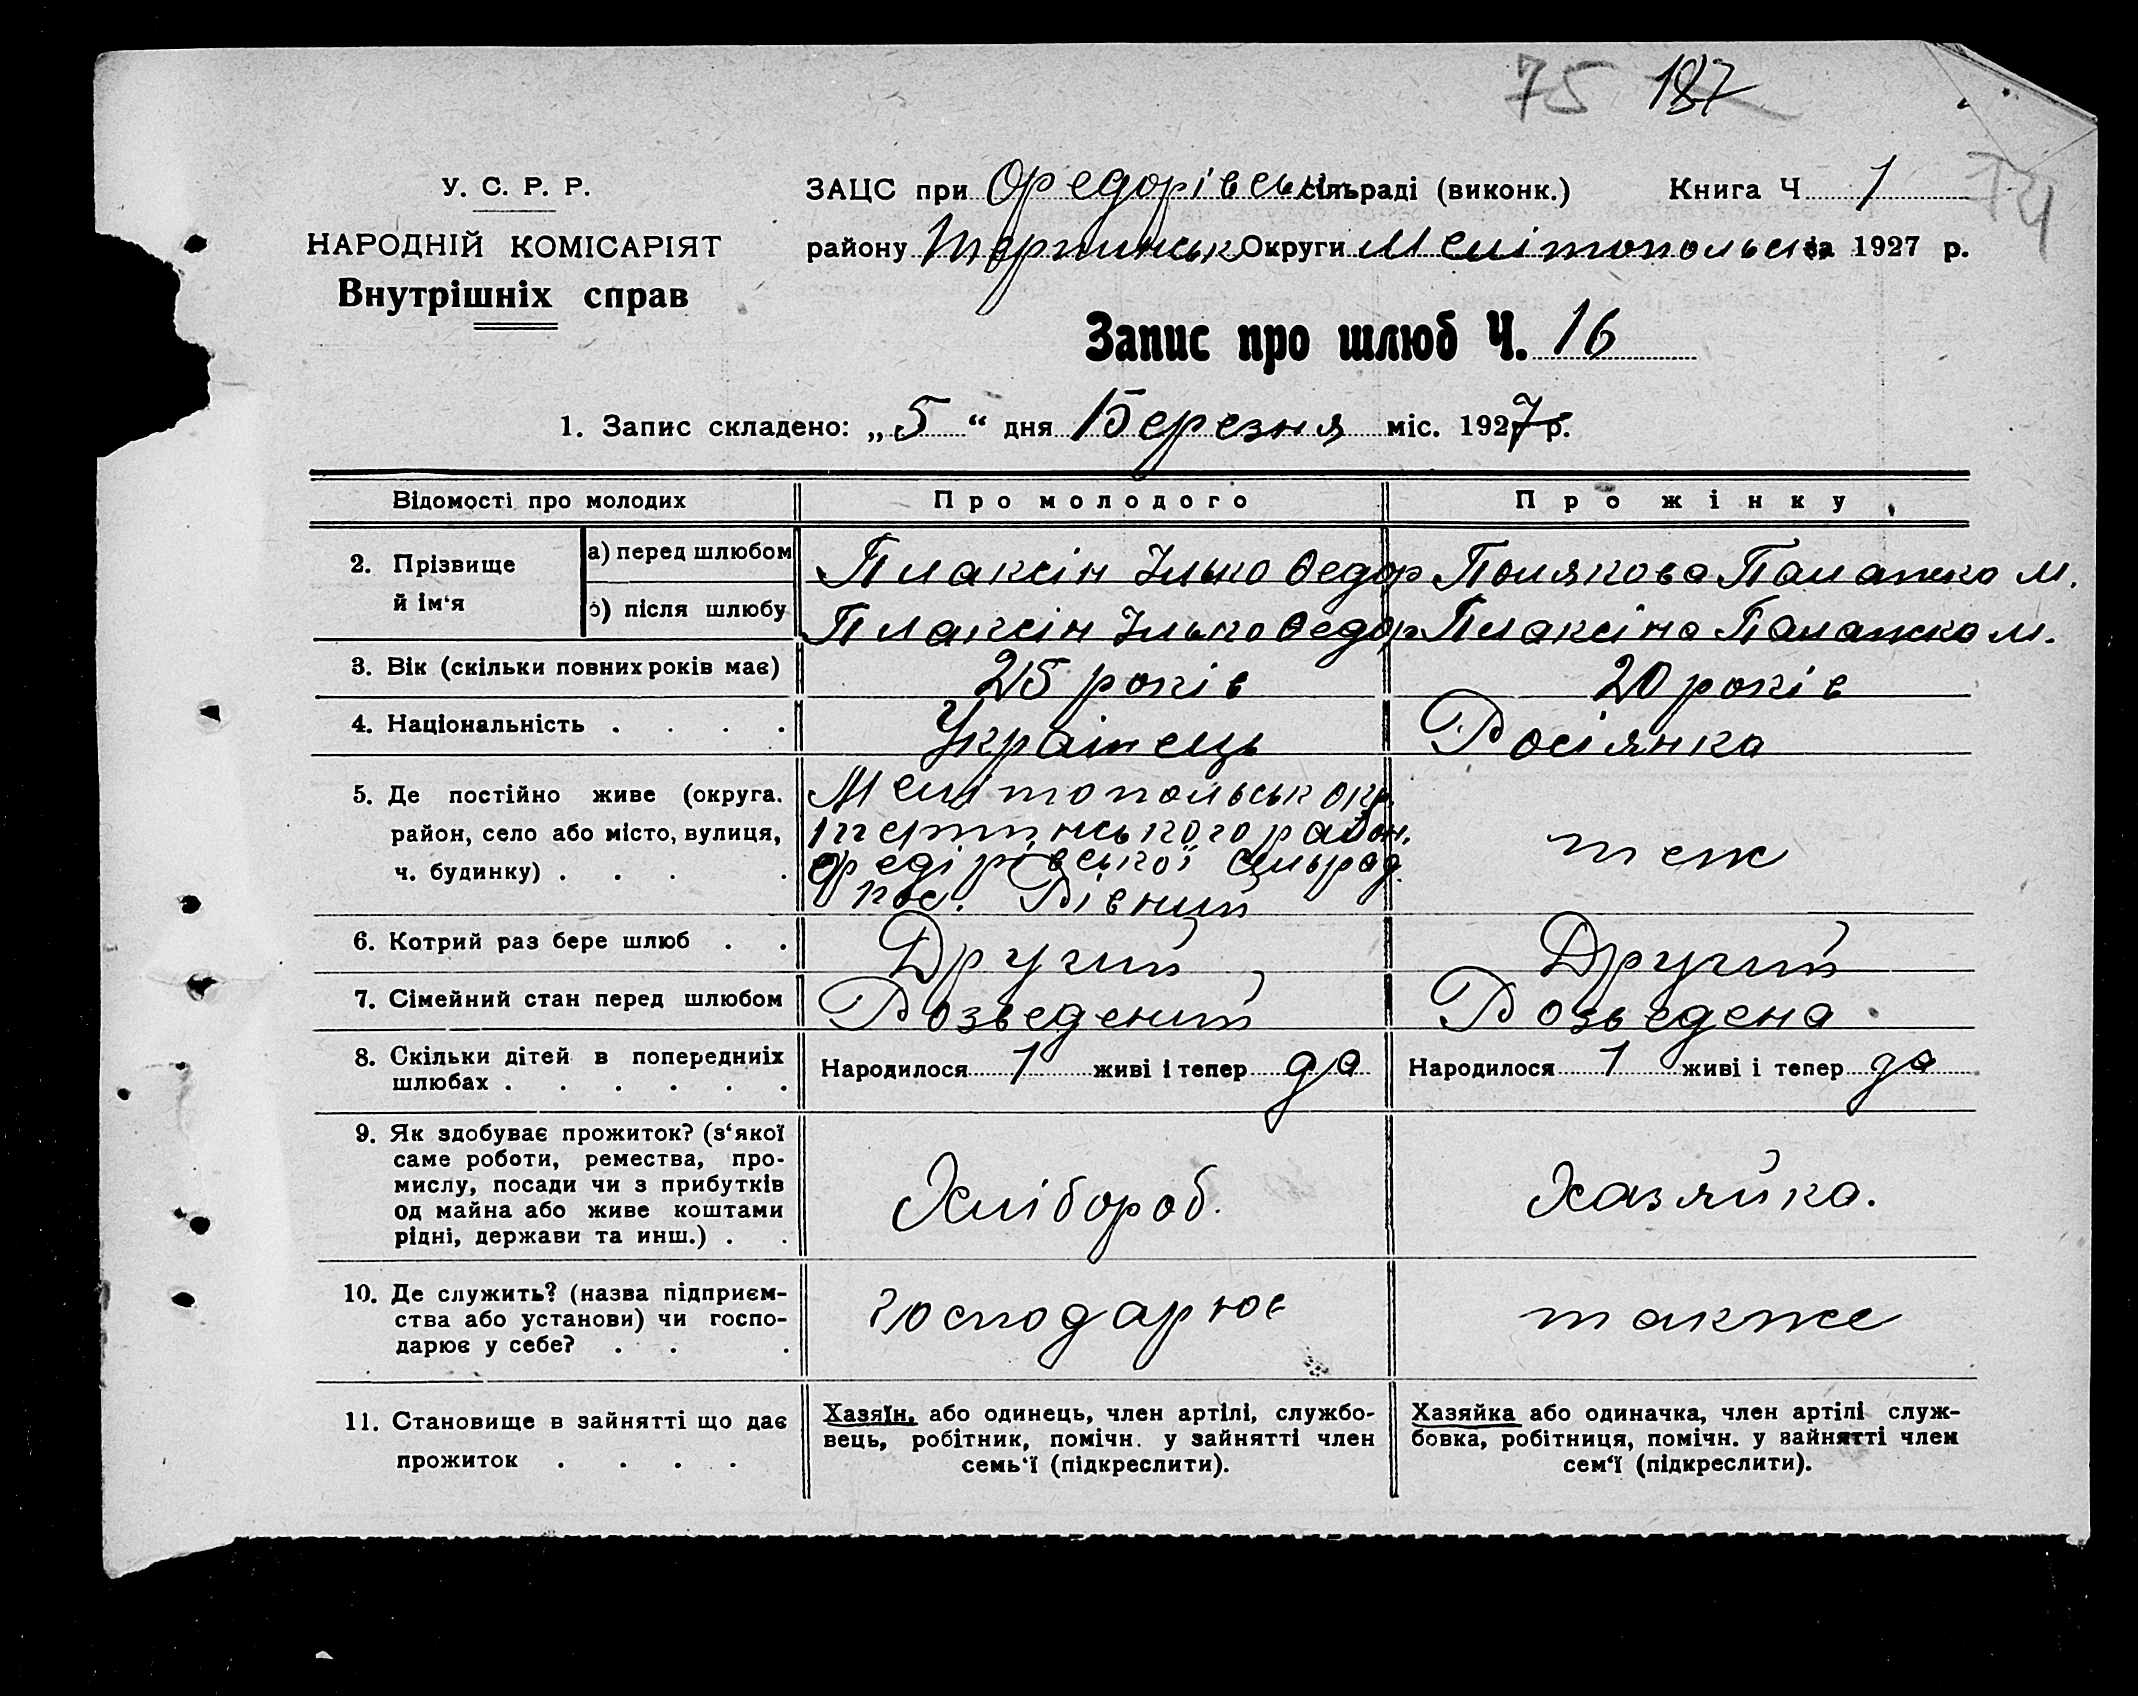 75 187
У. С. Р. Р.
НАРОДНІЙ КОМІСАРІЯТ
Внутрішніх справ
ЗАЦС при Офедорівськ сільраді (виконк.) Книга Ч 1
74
району Терпинськ Округи Мелітопольськ за 1927 р.
Запис про шлюб Ч. 16
1. Запис складено: „5“ дня Березня міс. 1927 р.
Відомості про молодих
Про молодого
Про жінку
2. Прізвище й ім'я
а) перед шлюбом
Плаксін Ілько Федор
Полякова Палажка М.
б) після шлюбу
Плаксін Ілько Федор
Плаксіна Палажка М.
3. Вік (скільки повних років має)
25 років
20 років
4. Національність . . . .
Українець
Росіянка
5. Де постійно живе (округа.
район, село або місто, вулиця,
ч. будинку) . . . .
Мелітопольськ окр.
Терпинського район.
Офедірівської сільрад.
пос. Рівний
теж
6. Котрий раз бере шлюб . .
Другий
Другий
7. Сімейний стан перед шлюбом
Розведений
Розведена
8. Скільки дітей в попередниіх
шлюбах . . . . . .
Народилося 1 живі і тепер да
Народилося 1 живі і тепер да
9. Як здобуває прожиток? (з'якої
саме роботи, ремества, про-
мислу, посади чи з прибутків
од майна або живе коштами
рідні, держави та инш.) . .
Хлібороб.
Хазяйка.
10. Де служить? (назва підприєм-
ства або установи) чи госпо-
дарює у себе? . . .
Господарює
также
11. Становище в зайнятті що дає
прожиток . . . .
Хазяїн, або одинець, член артілі, службо-
вець, робітник, помічн. у зайнятті член
семь'ї (підкреслити).
Хазяйка або одиначка, член артілі служ-
бовка, робітниця, помічн. у зайнятті член
сем'ї (підкреслити).